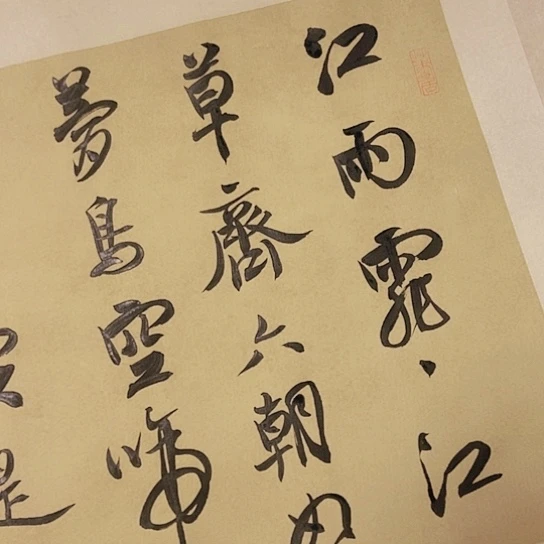 江雨霏、江
草齊六朝如
夢鳥空啼
是